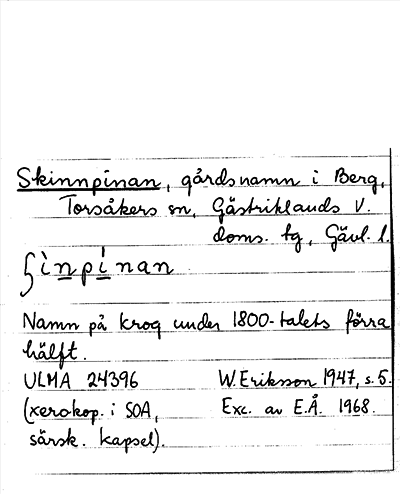 Skinnpinan, gårdsnamn i Berg,
Torsåkers sn, Gästriklands V.
doms. tg, Gävl. l.
ʃìnpìnan
Namn på krog under 1800-talets förra
hälft.
ULMA 24396 W. Eriksson 1947, s. 5.
(xerokop. i SOA, Exc. av E.Å. 1968.
särsk. kapsel).